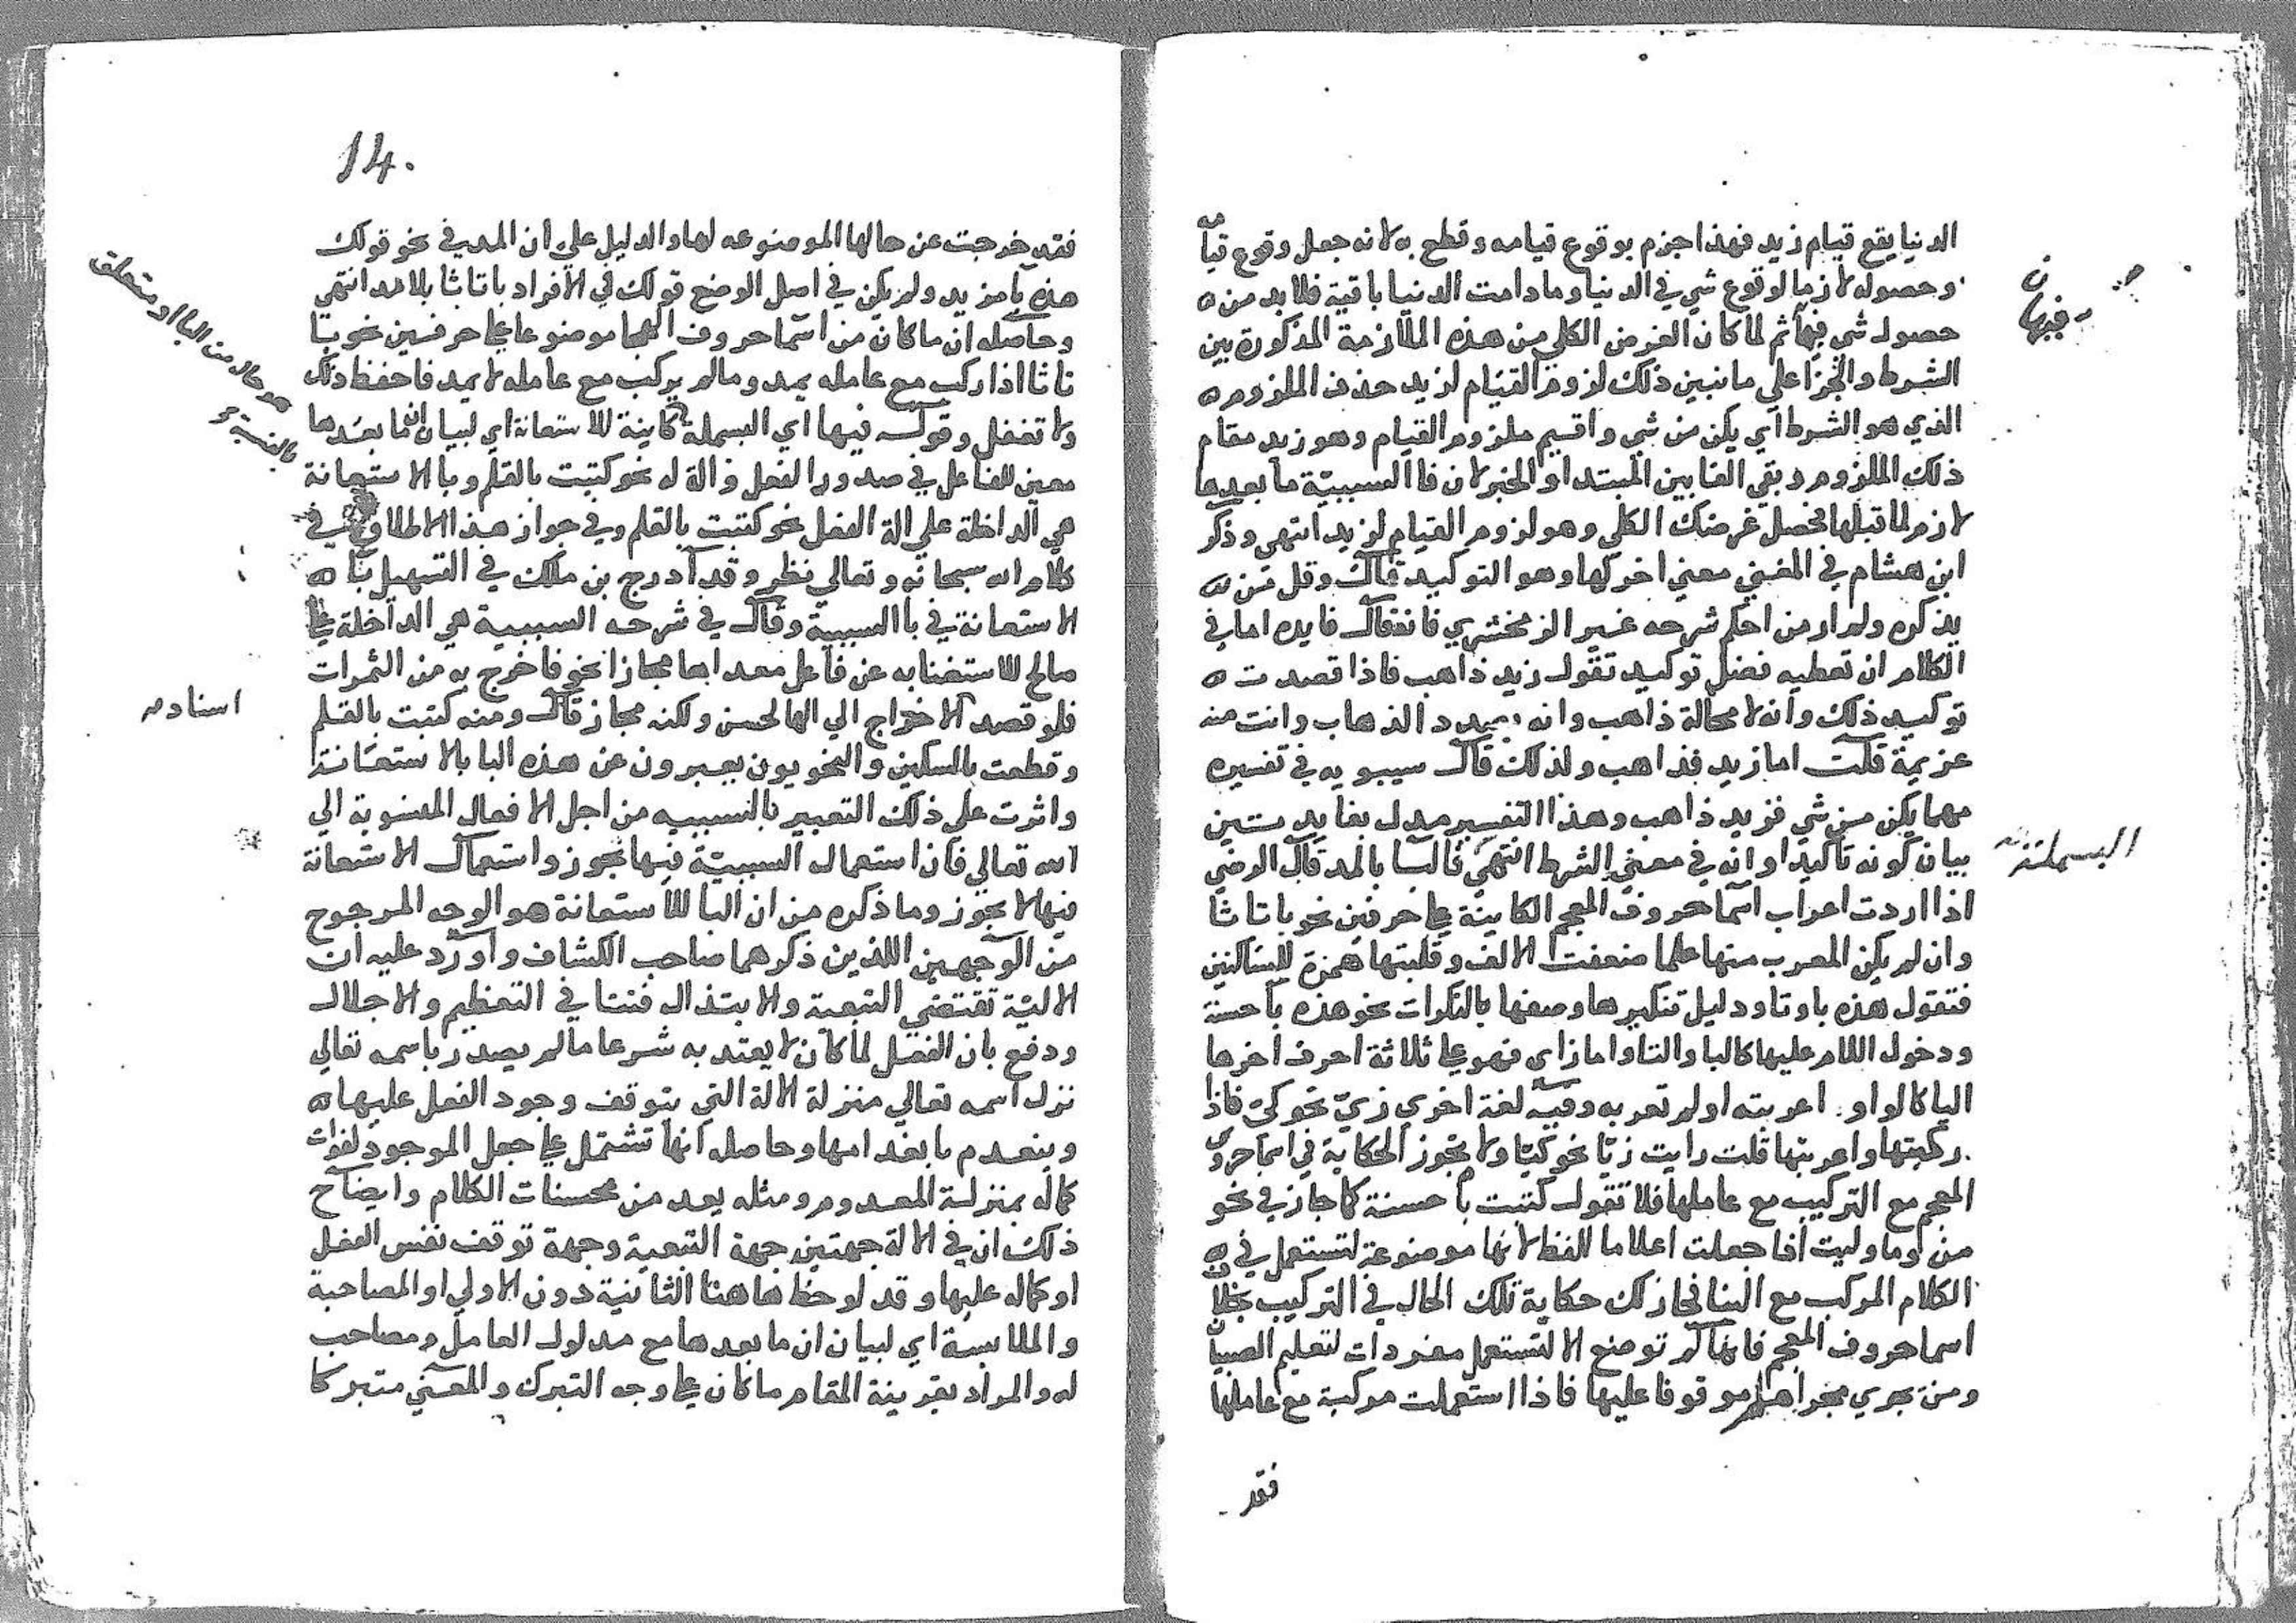 الدنيا يقع قيام زيد فهذا جزم بوقوع قيامه وقطع به لانه جعل وقوع قيامه
وحصوله لازما لوقوع شي في الدنيا وما دامت الدنيا باقية فلا بد من
حصول شي فيها ثم لما كان الغرض الكلي من هذه الملازمة المذكورة بين
الشرط والجزا علي ما نبين ذلك لزوم القيام لزيد حذف الملزوم
الذي هو الشرط اي يكن من شي واقيم ملزوم القيام وهو زيد مقام
ذلك الملزوم وبقي الفا بين المبتدا والخبر لان فا السببية ما بعدها
لازم لما قبلها فحصل غرضك الكلي وهو لزوم القيام لزيد انتهي وذكر
ابن هشام في المغني معني اخر لها وهو التوكيد قال وقل من
يذكره ولم ار من احكم شرحه غير الزمخشري فانه قال فايده اما في
الكلام ان تعطيه فضل توكيد تقول زيد ذاهب فاذا قصدت
توكيد ذلك وانه لا محالة ذاهب وانه بصدد الذهاب وانت منه
عزيمة قلت اما زيد فذاهب ولذلك قال سيبويه في تفسيره
مهما يكن من شي فزيد ذاهب وهذا التفسير مدل بفايدتين
بيان كونه تاكيدا وانه في معني الشرط انتهي فالبا بالمد قال الرضي
اذا اردت اعراب اسما حروف المعجم الكاينة علي حرفين نحو با تا ثا
وان لم يكن المعرب منها علما ضعفت الالف وقلبتها همزة للساكنين
فتقول هذه با وتا ودليل تنكيرها وصفها بالنكرات نحو هذه با حسنة
ودخول اللام عليها كالبا والتا واما زاي فهو علي ثلاثة احرف اخرها
اليا كالواو اعربته او لم تعربه وفيه لغة اخري زي نحو كي فاذا
ركبتها واعربتها قلت رايت زيا نحو كيا ولا تجوز الحكاية في اسما حروف
المعجم مع التركيب مع عاملها فلا تقول كتبت با حسنة كما جاز في نحو
من وما وليت اذا جعلت اعلاما للفظ لانها موضوعة لتستعمل في
الكلام المركب مع البنا فجاز لك حكاية تلك الحال في التركيب بخلاف
اسما حروف المعجم فانها لم توضع الا لتستعمل مفردات لتعليم الصبيان
ومن يجري مجراهم موقوفا عليها فاذا استعملت مركبة مع عاملها
فقد
فيها
البسملة
14.
فقد خرجت عن حالها الموضوعه لها والدليل علي ان المد في نحو قولك
هذه با مزيد ولم يكن في اصل الوضع قولك في الافراد با تا ثا بلا مد انتهي
وحاصله ان ما كان من اسما حروف الهجا موضوعا علي حرفين نحو با
تا ثا اذا ركب مع عامله يمد وما لم يركب مع عامله لا يمد فاحفظ ذلك
ولا تغفل وقوله فيها اي البسملة كاينة للاستعانة اي لبيان ان ما بعدها
معين للفاعل في صدور الفعل والة له نحو كتبت بالقلم وبا الاستعانة
هي الداخلة علي الة الفعل نحو كتبت بالقلم وفي جواز هذا الاطلاق في
كلام الله سبحانه وتعالي نظر وقد ادرج بن ملك في التسهيل با
الاستعانة في با السببية وقال في شرحه السببية هي الداخلة علي
صالح للاستغنا به عن فاعل معداها مجازا نحو فاخرج به من الثمرات
فلو قصد الاخراج الي الها لحسن ولكنه مجاز قال ومنه كتبت بالقلم
وقطعت بالسكين والنحويون يعبرون عن هذه البا بالاستعانة
واثرت علي ذلك التعبير بالسببيه من اجل الافعال المنسوبة الي
الله تعالي فان استعمال السببية فيها يجوز واستعمال الاستعانة
فيها لا يجوز وما ذكره من ان البا للاستعانة هو الوجه المرجوح
من الوجهين اللذين ذكرهما صاحب الكشاف واورد عليه ان
الالية تقتضي التبعية والابتذال فتنافي التعظيم والاجلال
ودفع بان الفعل لما كان لا يعتد به شرعا ما لم يصدر باسمه تعالي
نزل اسمه تعالي منزلة الالة التي يتوقف وجود الفعل عليها
وينعدم بانعدامها وحاصله انها تشتمل علي جعل الموجود لفوات
كماله بمنزلة المعدوم ومثله يعد من محسنات الكلام وايضاح
ذلك ان في الالة جهتين جهة التبعية وجهة توقف نفس الفعل
او كماله عليها وقد لوحظ هاهنا الثانية دون الاولي او المصاحبة
والملابسة اي لبيان ان ما بعدها مع مدلول العامل ومصاحب
له والمراد بقرينة المقام ما كان علي وجه التبرك والمعني متبركا
هو حال من البا او متعلق
بالنسبة
اسناده